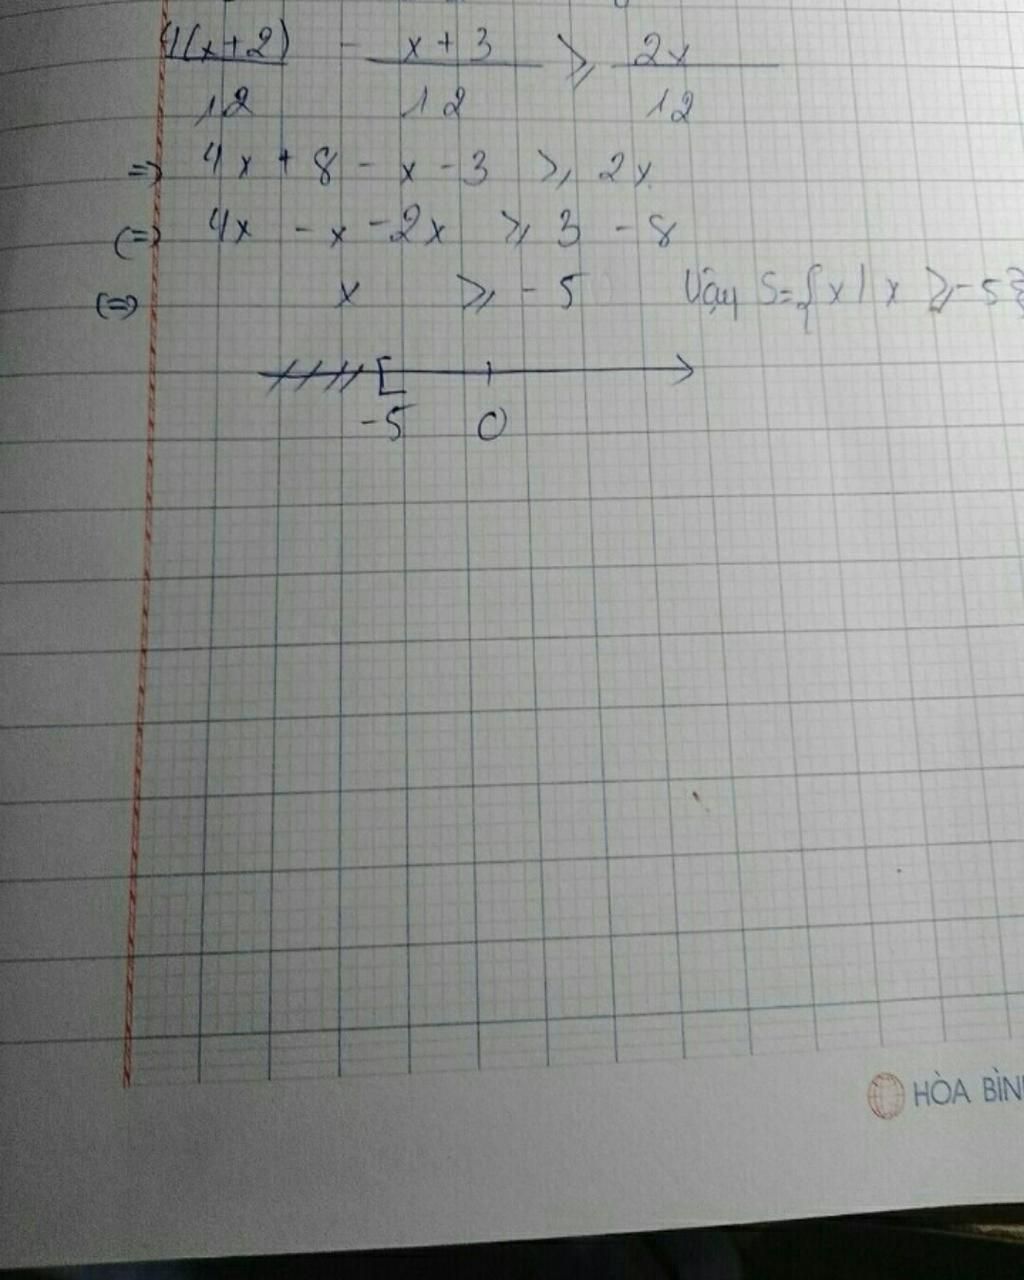 4(x+2)/12 - x+3/12 ⩾ 2x/12
=> 4x + 8 - x - 3 ⩾ 2x
(=) 4x - x - 2x ⩾ 3 - 8
(=) x ⩾ -5 Vậy S={x | x ⩾ -5}
-5 0
HÒA BÌN